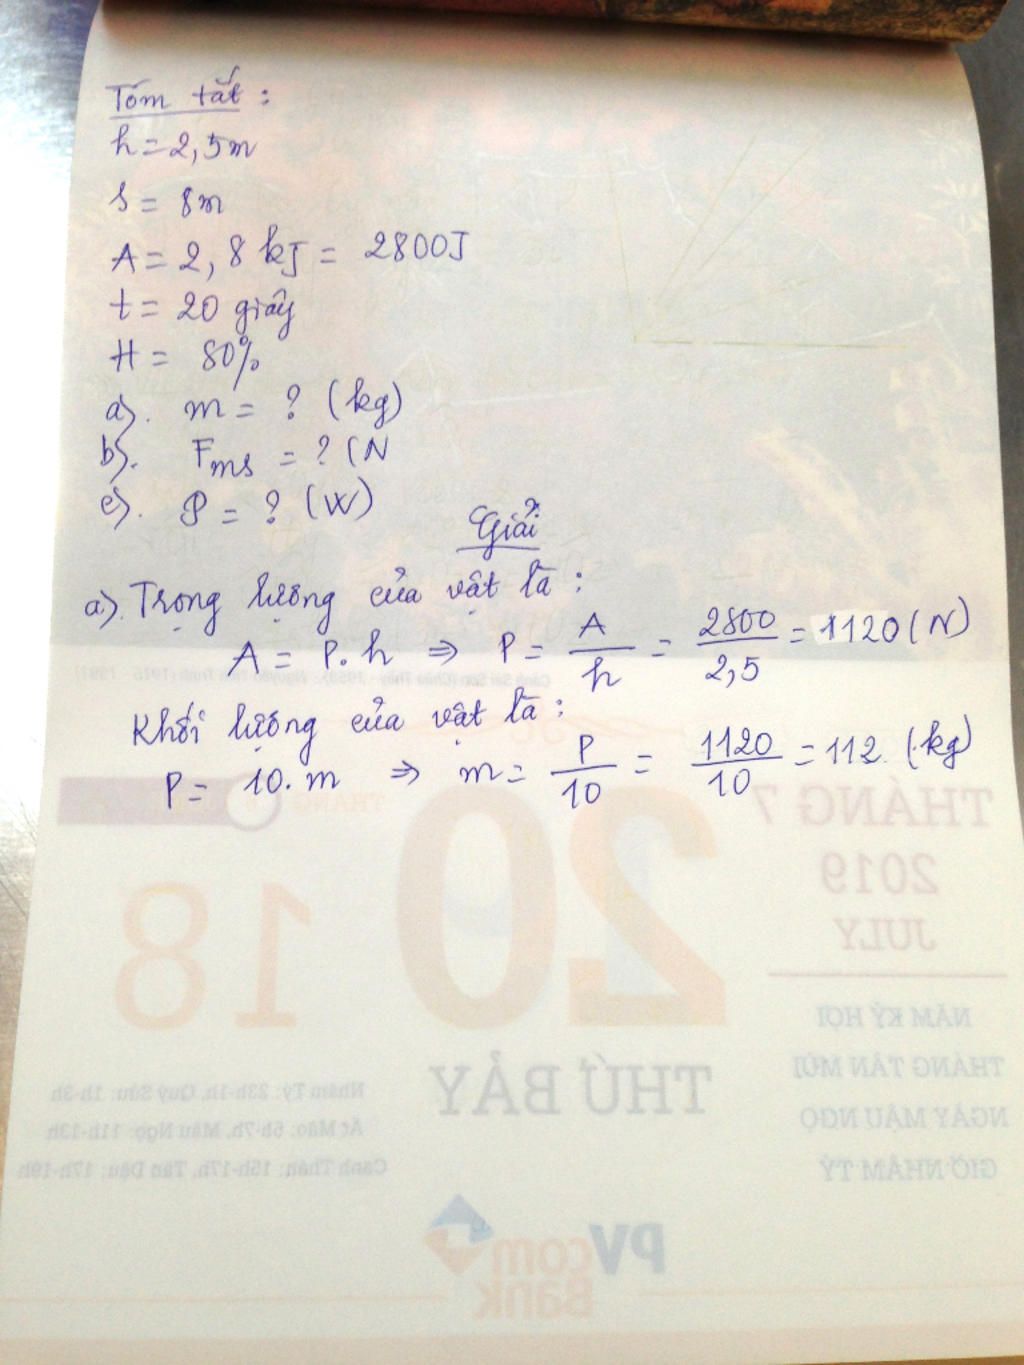 Tóm tắt :
h = 2,5m
s = 8m
A = 2,8 kJ = 2800J
t = 20 giây
H = 80%
a). m = ? (kg)
b). Fms = ? (N
c). P = ? (W)
Giải
a). Trọng lượng của vật là :
A = P.h ⇒ P = A/h = 2800/2,5 = 1120 (N)
Khối lượng của vật là :
P = 10.m ⇒ m = P/10 = 1120/10 = 112 (kg)
THÁNG 7
2019
JULY
20
18
THÁNG 6
NĂM KỶ HỢI
THÁNG TÂN MÙI
NGÀY MẬU NGỌ
GIỜ NHÂM TÝ
THỨ BẢY
Nhâm Tý: 23h-1h, Quý Sửu: 1h-3h
Ất Mão: 5h-7h, Mậu Ngọ: 11h-13h
Canh Thân: 15h-17h, Tân Dậu: 17h-19h
PVcom
Bank